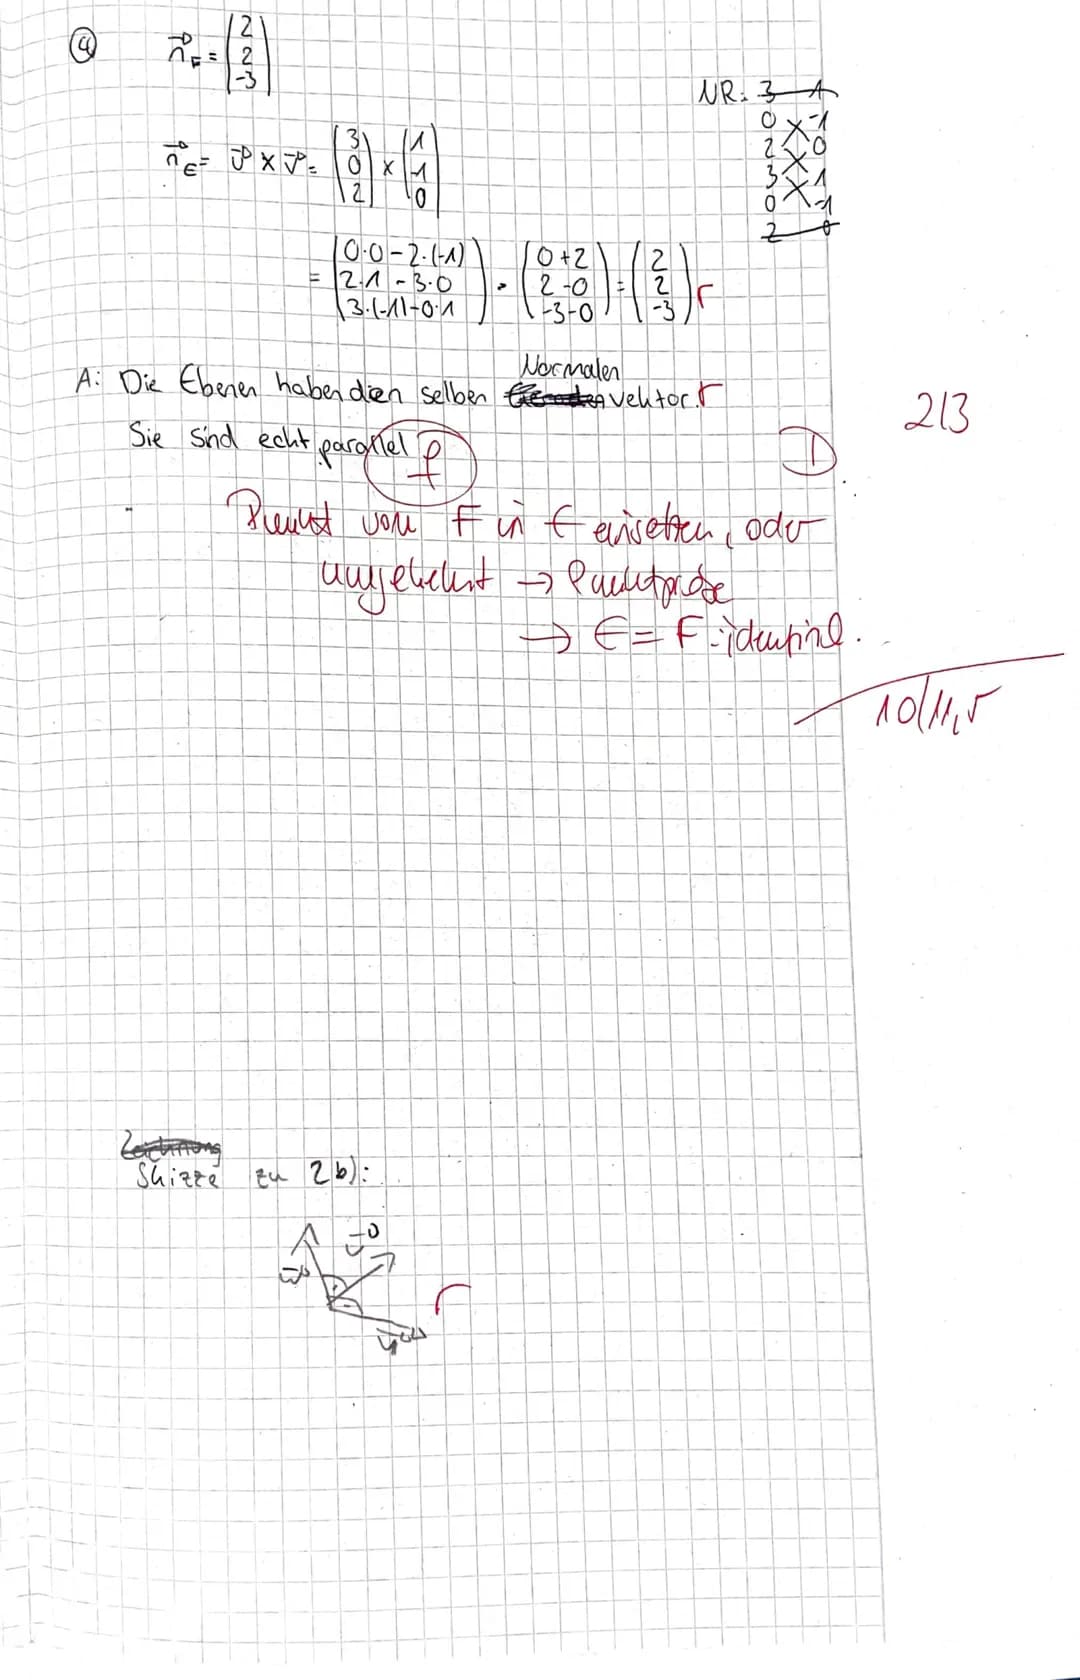 ④ n⃗_F = (2 2 -3)
NR: 3 1
0 -1
2 0
3 1
0 -1
2 0
n⃗_E = v⃗ × v⃗ = (3 0 2) × (1 -1 0)
= (0·0-2·(-1) 2·1-3·0 3·(-1)-0·1) = (0+2 2-0 -3-0) = (2 2 -3) r
Normalen
A: Die Ebenen haben dien selben vektor. r
2/3
Sie sind echt parallel f
D
Punkt von F in E einsetzen, oder
umgekehrt → Punktprobe
→ E = F identisch.
10/11,5
Zeichnung
Skizze zu 2b):
r